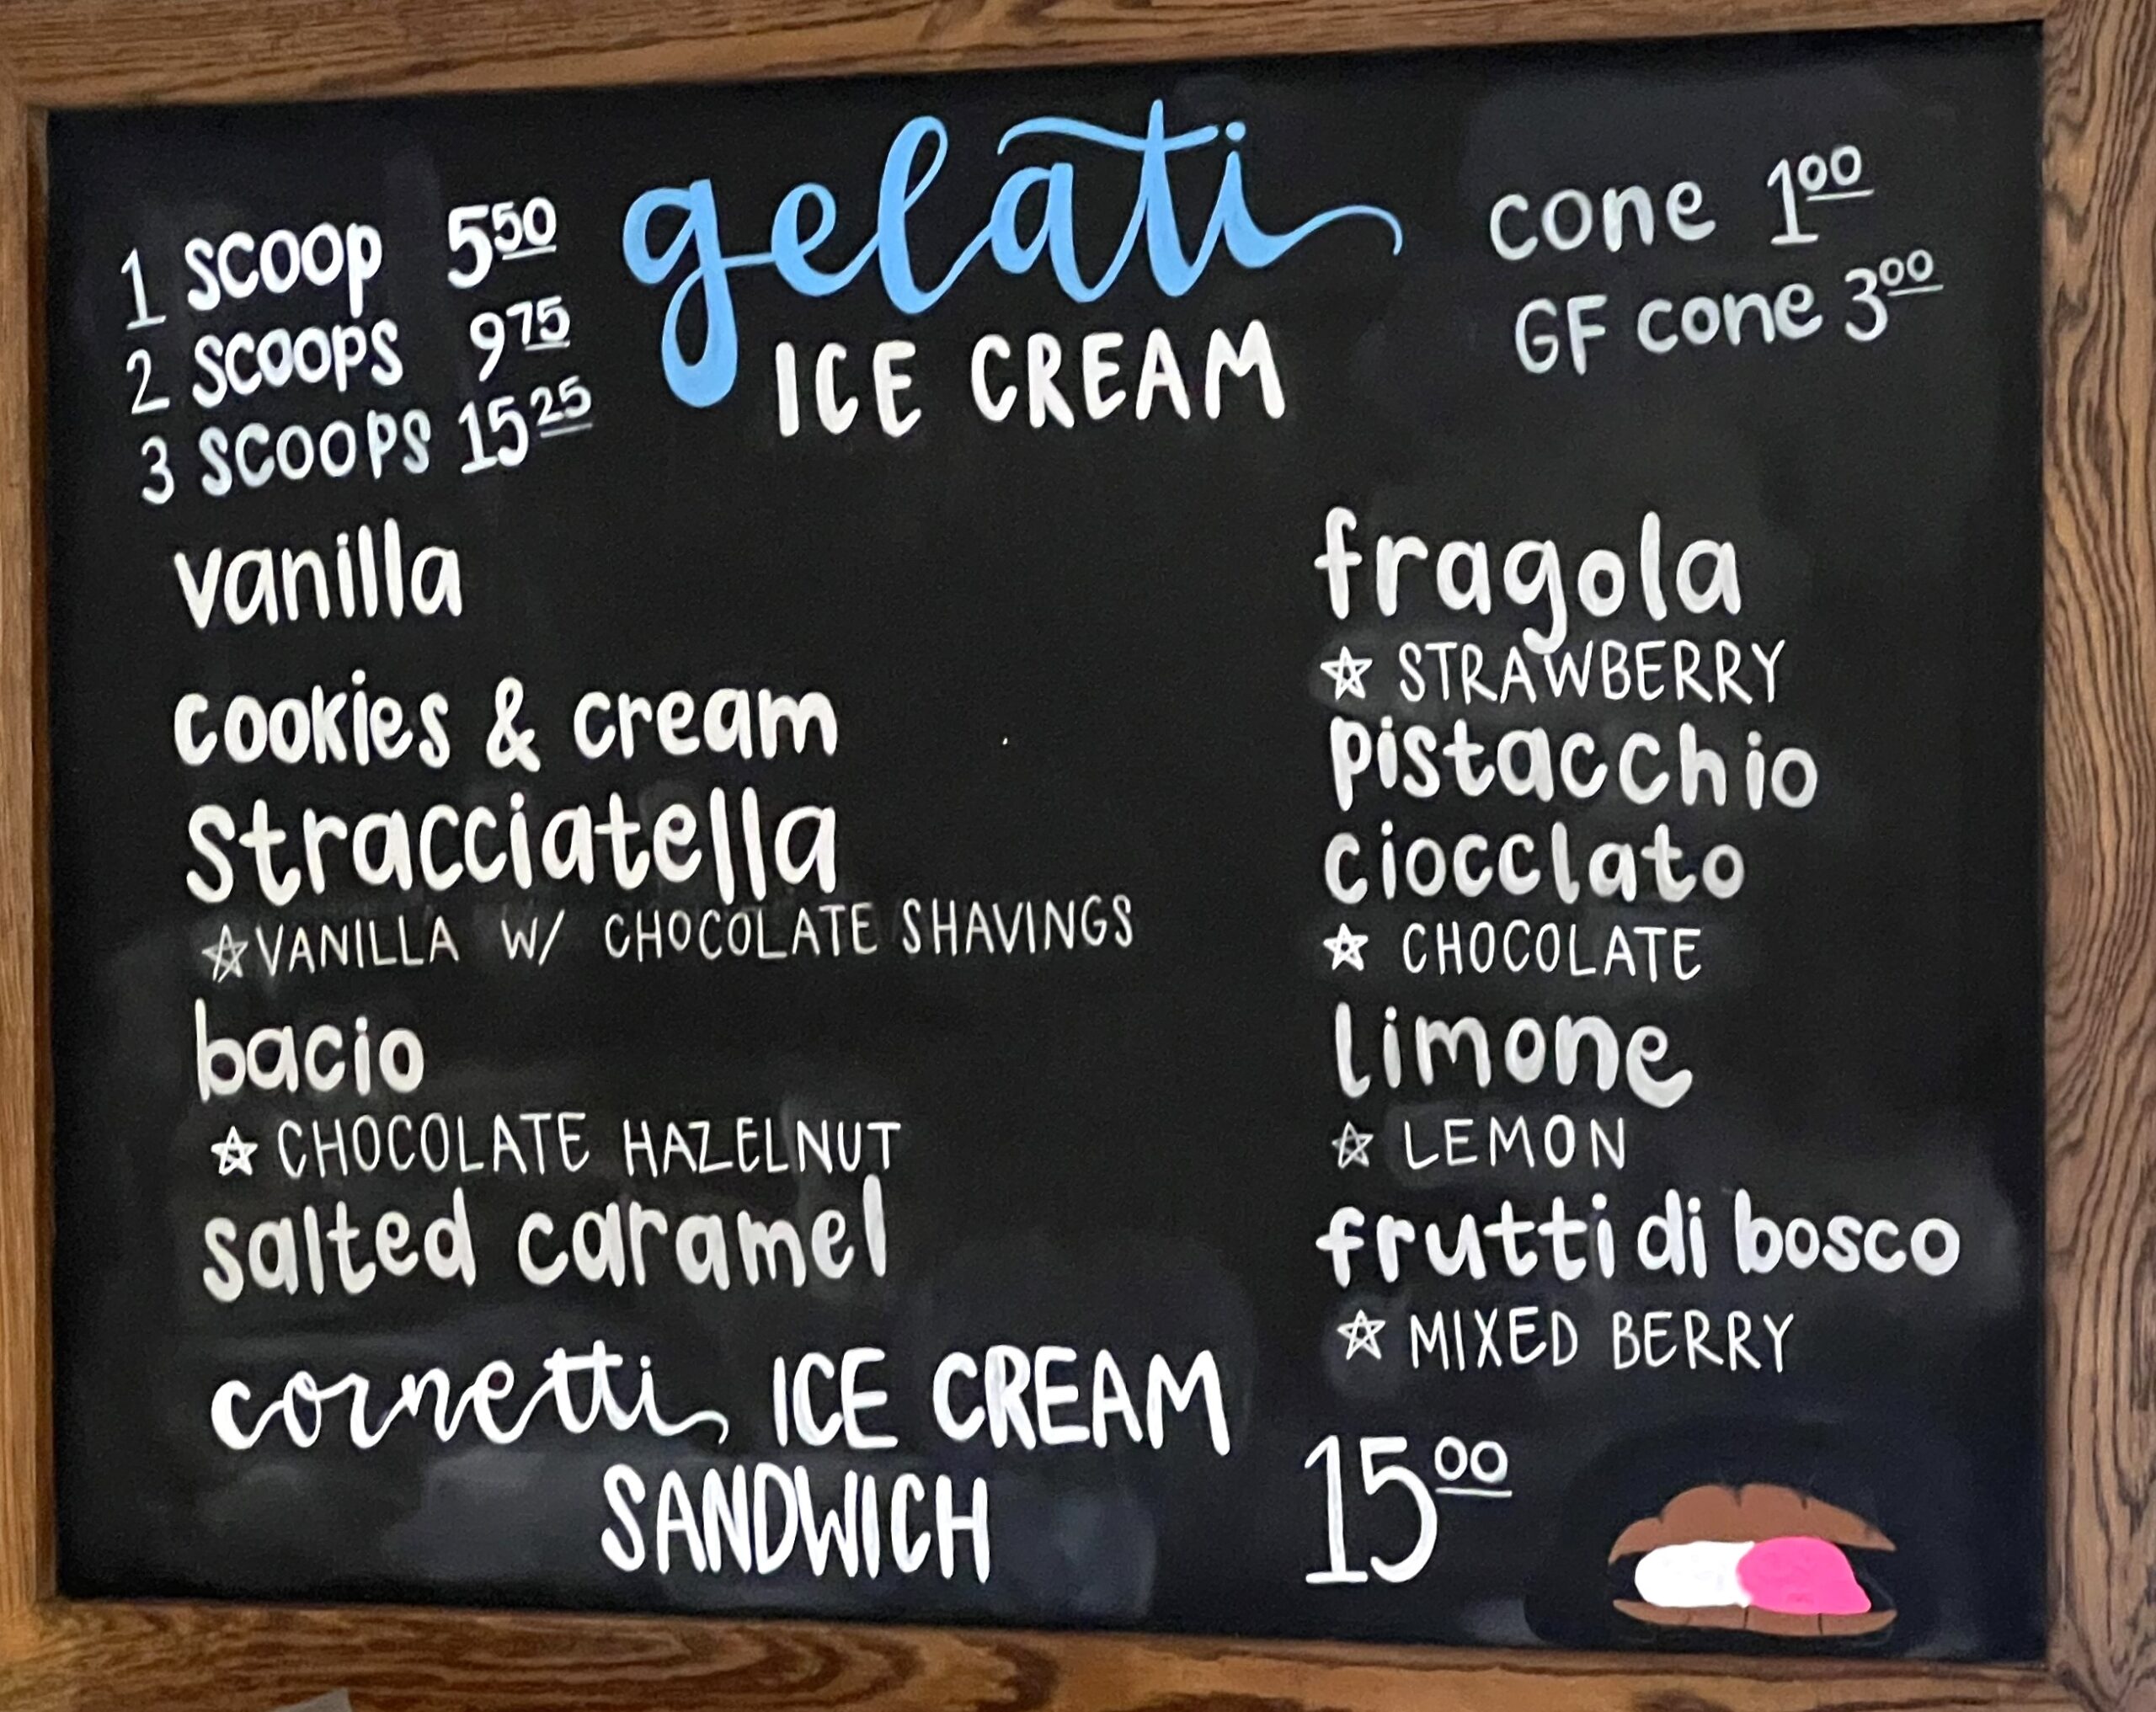 gelati
ICE CREAM
1 SCOOP 5 50
2 SCOOPS 9 75
3 SCOOPS 15 25
cone 1 00
GF cone 3 00
vanilla
cookies & cream
stracciatella
☆ VANILLA W/ CHOCOLATE SHAVINGS
bacio
☆ CHOCOLATE HAZELNUT
salted caramel
fragola
☆ STRAWBERRY
pistacchio
ciocclato
☆ CHOCOLATE
limone
☆ LEMON
frutti di bosco
☆ MIXED BERRY
cornetti ICE CREAM
SANDWICH
15 00